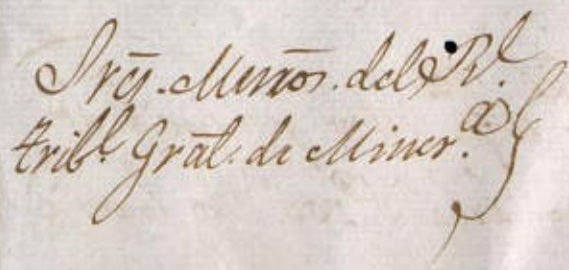 Sres. Minros. del Rl.
tribl. Gral. de Miner.a